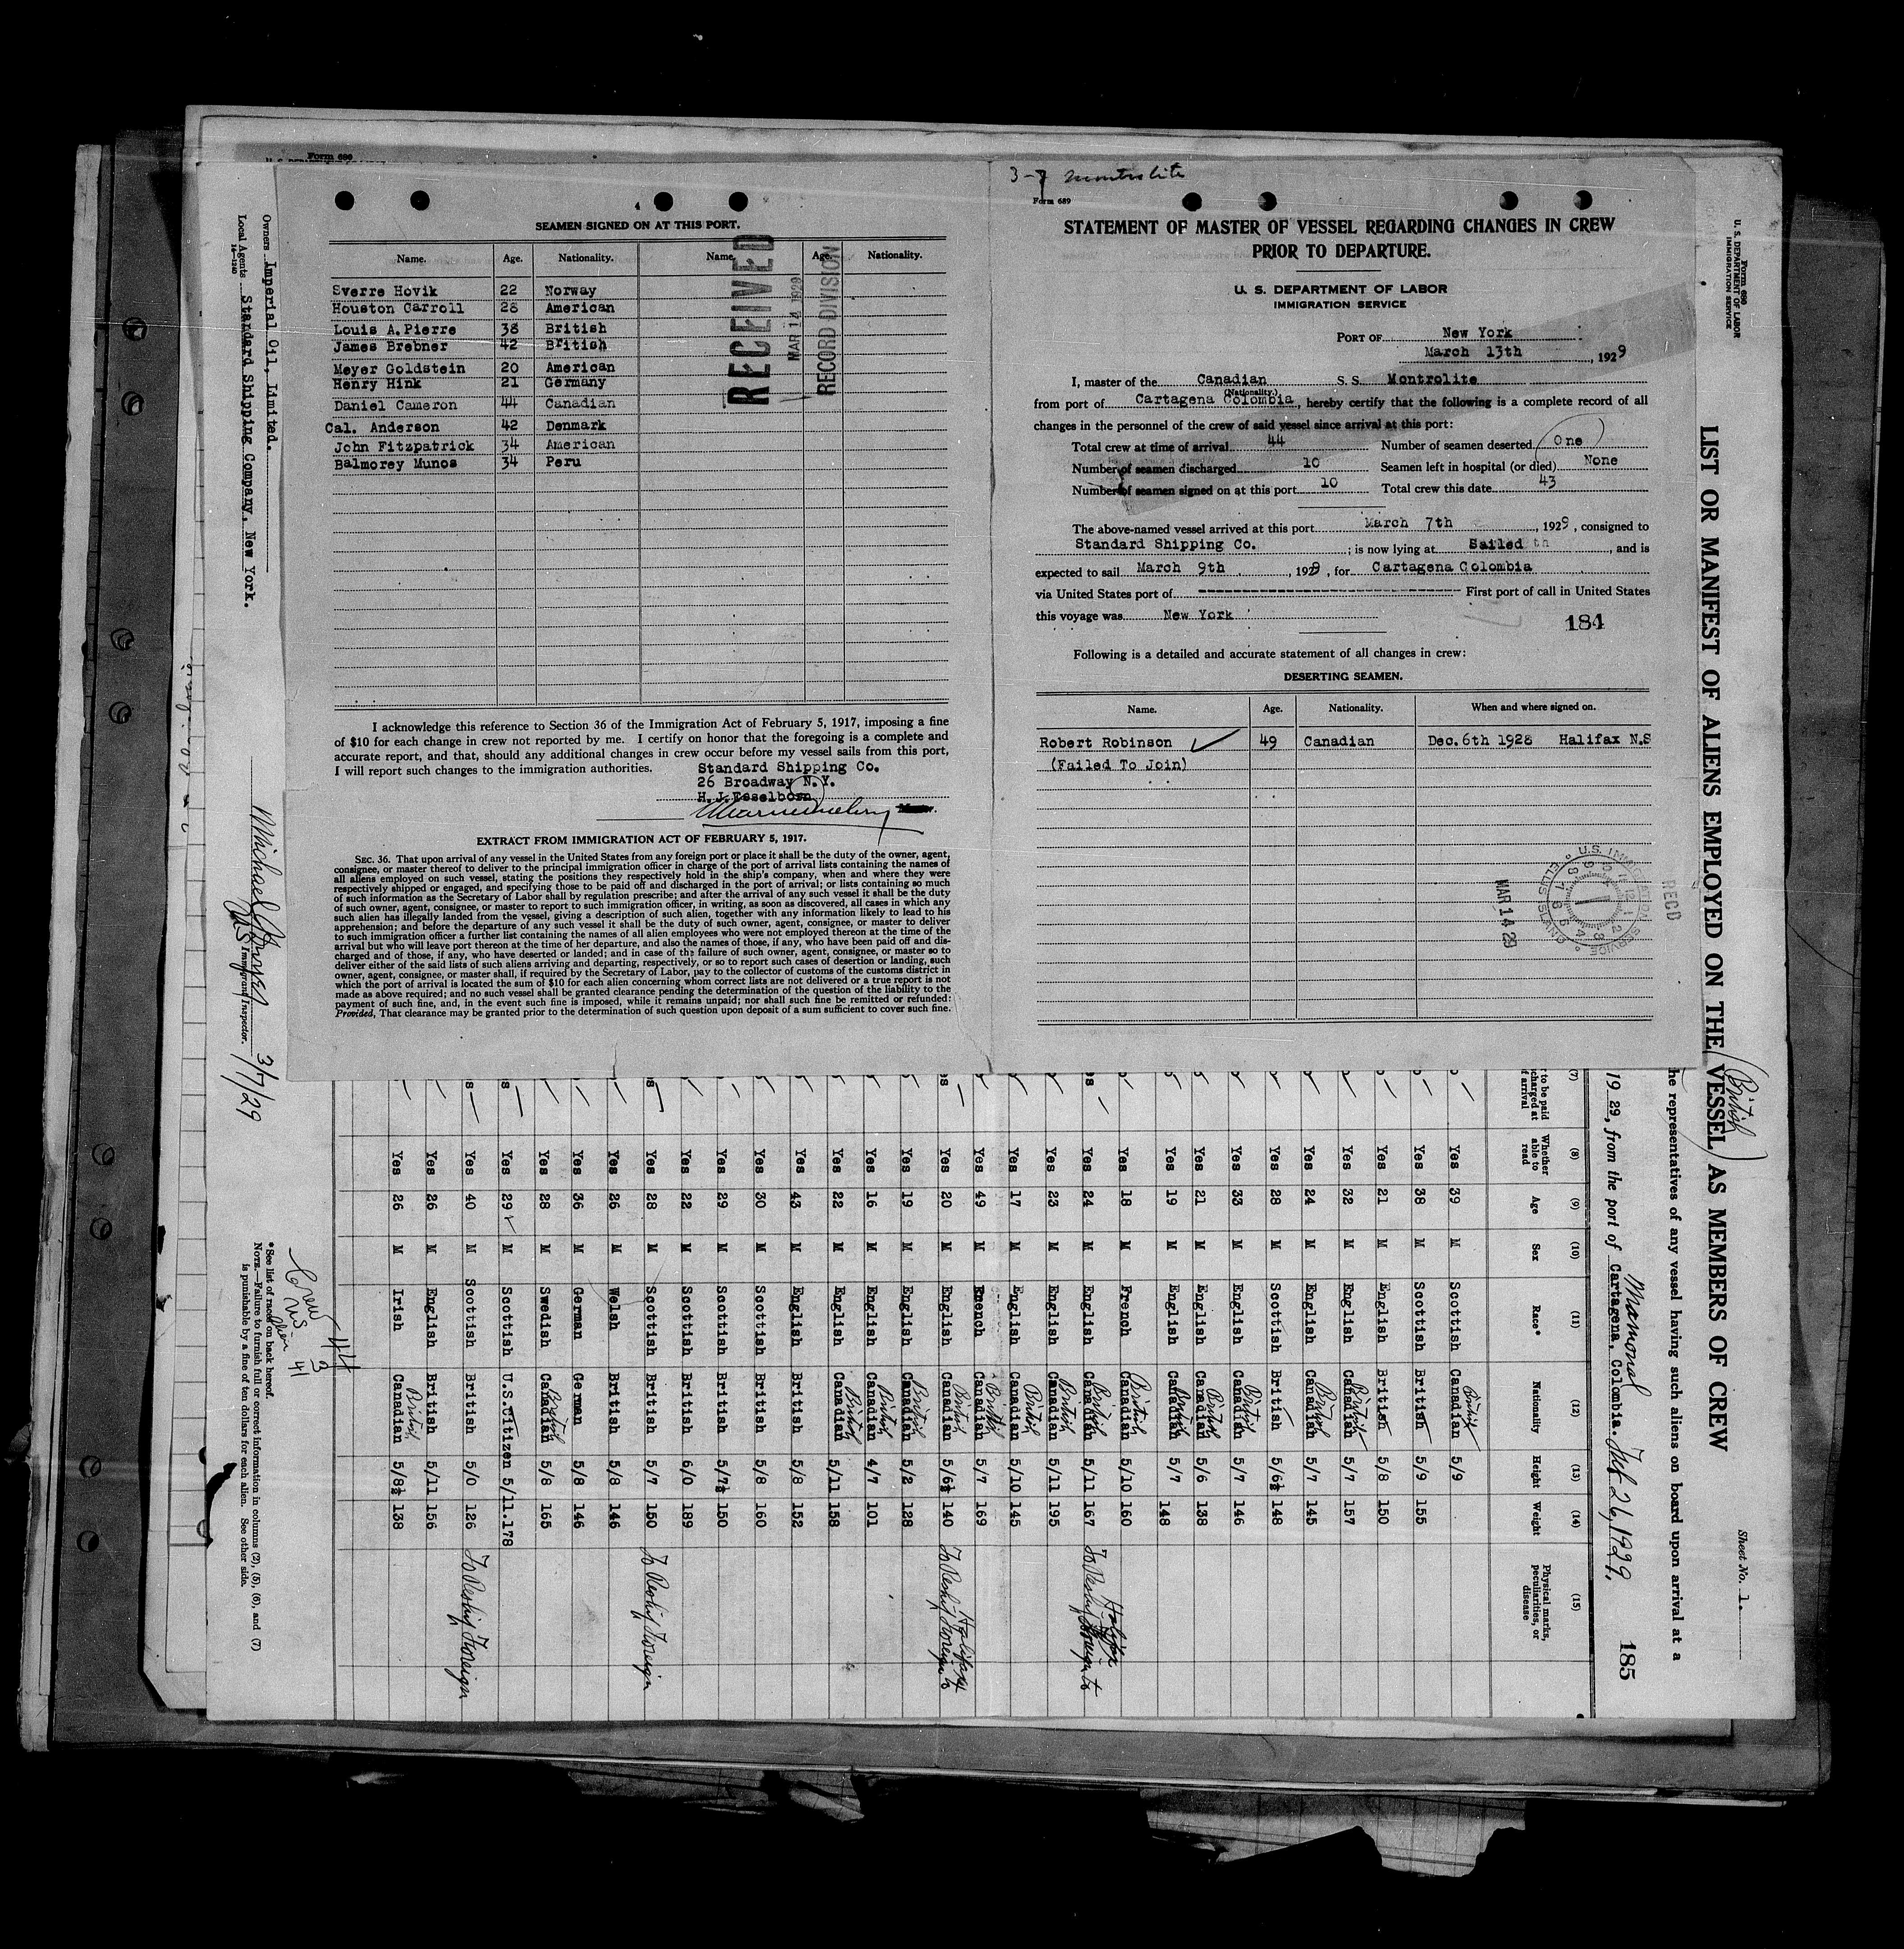 Form 689
SEAMEN SIGNED ON AT THIS PORT.
Name. Age. Nationality. Name. Age. Nationality.
Sverre Hovik 22 Norway
Houston Carroll 28 American
Louis A. Pierre 38 British
James Brebner 42 British
Meyer Goldstein 20 American
Henry Hink 21 Germany
Daniel Cameron 44 Canadian
Cal. Anderson 42 Denmark
John Fitzpatrick 34 American
Balmorey Munos 34 Peru
RECEIVED
MAR 14 1929
RECORD DIVISION
I acknowledge this reference to Section 36 of the Immigration Act of February 5, 1917, imposing a fine
of $10 for each change in crew not reported by me. I certify on honor that the foregoing is a complete and
accurate report, and that, should any additional changes in crew occur before my vessel sails from this port,
I will report such changes to the immigration authorities. Standard Shipping Co.
26 Broadway N.Y.
H.J.Esselborn
EXTRACT FROM IMMIGRATION ACT OF FEBRUARY 5, 1917.
SEC. 36. That upon arrival of any vessel in the United States from any foreign port or place it shall be the duty of the owner, agent,
consignee, or master thereof to deliver to the principal immigration officer in charge of the port of arrival lists containing the names of
all aliens employed on such vessel, stating the positions they respectively hold in the ship's company, when and where they were
respectively shipped or engaged, and specifying those to be paid off and discharged in the port of arrival; or lists containing so much
of such information as the Secretary of Labor shall by regulation prescribe; and after the arrival of any such vessel it shall be the duty
of such owner, agent, consignee, or master to report to such immigration officer, in writing, as soon as discovered, all cases in which any
such alien has illegally landed from the vessel, giving a description of such alien, together with any information likely to lead to his
apprehension; and before the departure of any such vessel it shall be the duty of such owner, agent, consignee, or master to deliver
to such immigration officer a further list containing the names of all alien employees who were not employed thereon at the time of the
arrival but who will leave port thereon at the time of her departure, and also the names of those, if any, who have been paid off and dis-
charged and of those, if any, who have deserted or landed; and in case of the failure of such owner, agent, consignee, or master so to
deliver either of the said lists of such aliens arriving and departing, respectively, or so to report such cases of desertion or landing, such
owner, agent, consignee, or master shall, if required by the Secretary of Labor, pay to the collector of customs of the customs district in
which the port of arrival is located the sum of $10 for each alien concerning whom correct lists are not delivered or a true report is not
made as above required; and no such vessel shall be granted clearance pending the determination of the question of the liability to the
payment of such fine, and, in the event such fine is imposed, while it remains unpaid; nor shall such fine be remitted or refunded:
Provided, That clearance may be granted prior to the determination of such question upon deposit of a sum sufficient to cover such fine.
3-7 Montrolite
Form 689
STATEMENT OF MASTER OF VESSEL REGARDING CHANGES IN CREW
PRIOR TO DEPARTURE.
U. S. DEPARTMENT OF LABOR
IMMIGRATION SERVICE
PORT OF New York
March 13th, 1929
I, master of the Canadian S.S. Montrolite
(Nationality.)
from port of Cartagena Colombia, hereby certify that the following is a complete record of all
changes in the personnel of the crew of said vessel since arrival at this port:
Total crew at time of arrival 44 Number of seamen deserted One
Number of seamen discharged 10 Seamen left in hospital (or died) None
Number of seamen signed on at this port 10 Total crew this date 43
The above-named vessel arrived at this port March 7th, 1929, consigned to
Standard Shipping Co.; is now lying at Sailed, and is
expected to sail March 9th, 1929, for Cartagena Colombia
via United States port of ---------- First port of call in United States
this voyage was New York
184
Following is a detailed and accurate statement of all changes in crew:
DESERTING SEAMEN.
Name. Age. Nationality. When and where signed on.
Robert Robinson 49 Canadian Dec. 6th 1928 Halifax N.S
(Failed To Join)
RECD
U.S. IMMIGRATION SERVICE
ELLIS ISLAND
MAR 14 29
Form 680
U. S. DEPARTMENT OF LABOR
IMMIGRATION SERVICE
Sheet No. 1.
LIST OR MANIFEST OF ALIENS EMPLOYED ON THE VESSEL AS MEMBERS OF CREW
British
he representatives of any vessel having such aliens on board upon arrival at a
Mamonal
19 29, from the port of Cartagena, Colombia. Feb 26, 1929.
185
(7) (8) (9) (10) (11) (12) (13) (14) (15)
Whether able to read Age Sex Race* Nationality Height Weight Physical marks, peculiarities, or disease
Yes 39 M Scottish Canadian British 5/9
Yes 38 M Scottish British 5/9 155
Yes 21 M English British 5/8 150
Yes 32 M English Canadian British 5/7 157
Yes 24 M English Canadian British 5/7 145
Yes 28 M Scottish British 5/6½ 148
Yes 33 M English Canadian British 5/7 146
Yes 21 M English Canadian British 5/6 138
Yes 19 M English Canadian British 5/7 148
Yes 18 M French Canadian British 5/10 160
Yes 24 M English Canadian British 5/11 167 To Reship Foreign to Halifax
Yes 23 M English Canadian British 5/11 195
Yes 17 M English Canadian British 5/10 145
Yes 49 M French Canadian British 5/7 169
Yes 20 M English Canadian British 5/6½ 140 To Reship Foreign to Halifax
Yes 19 M English Canadian British 5/2 128
Yes 16 M English Canadian British 4/7 101
Yes 22 M English Canadian British 5/11 158
Yes 43 M English British 5/8 152
Yes 30 M Scottish British 5/8 160
Yes 29 M Scottish British 5/7½ 150
Yes 22 M Scottish British 6/0 189
Yes 28 M Scottish British 5/7 150 To Reship Foreign
Yes 26 M Welsh British 5/8 146
Yes 36 M German German 5/8 146
Yes 28 M Swedish Canadian British 5/8 165
Yes 29 M Scottish U.S.Citizen 5/11. 178
Yes 40 M Scottish British 5/0 126 To Reship Foreign
Yes 26 M English British 5/11 156
Yes 26 M Irish Canadian British 5/8½ 138
Crew 44
US 3
Alien 41
*See list of races on back hereof.
NOTE.—Failure to furnish full or correct information in columns (2), (5), (6), and (7)
is punishable by a fine of ten dollars for each alien. See other side.
Owners Imperial Oil, Limited.
Local Agents Standard Shipping Company, New York.
14-1240
3/7/29
Immigrant Inspector.